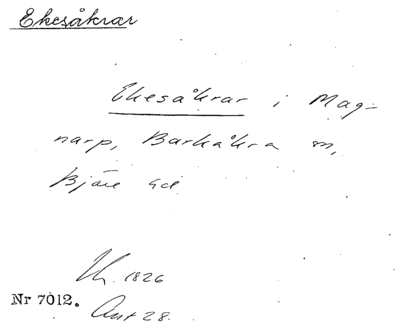 Ekesåkrar
Ekesåkrar i Mag-
narp, Barkåkra sn,
Bjäre hd
1826
Nr 7012.
Ant 28.